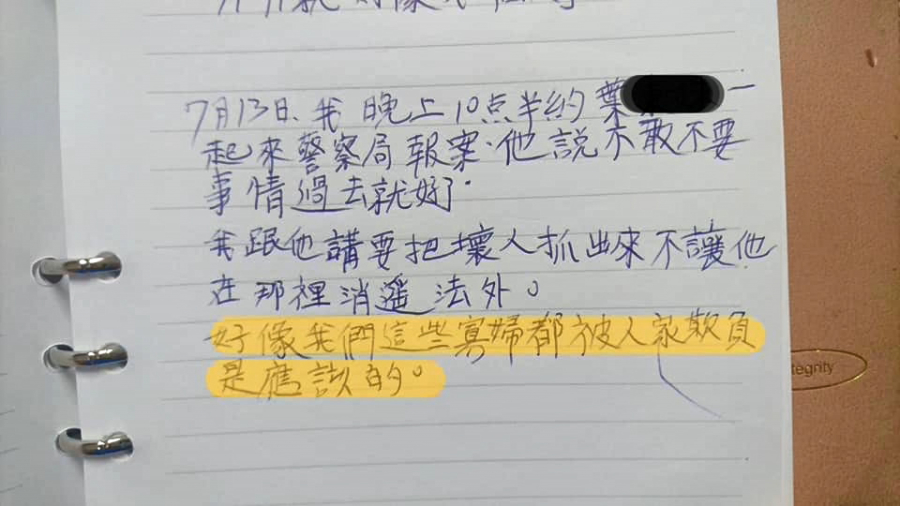 7月13日、我晚上10点半約葉 一
起來警察局報案.他說不敢不要
事情過去就好了.
我跟他講要把壞人抓出來不讓他
在那裡消遥法外。
好像我們這些寡婦都被人家欺負
是應該的。
tegrity